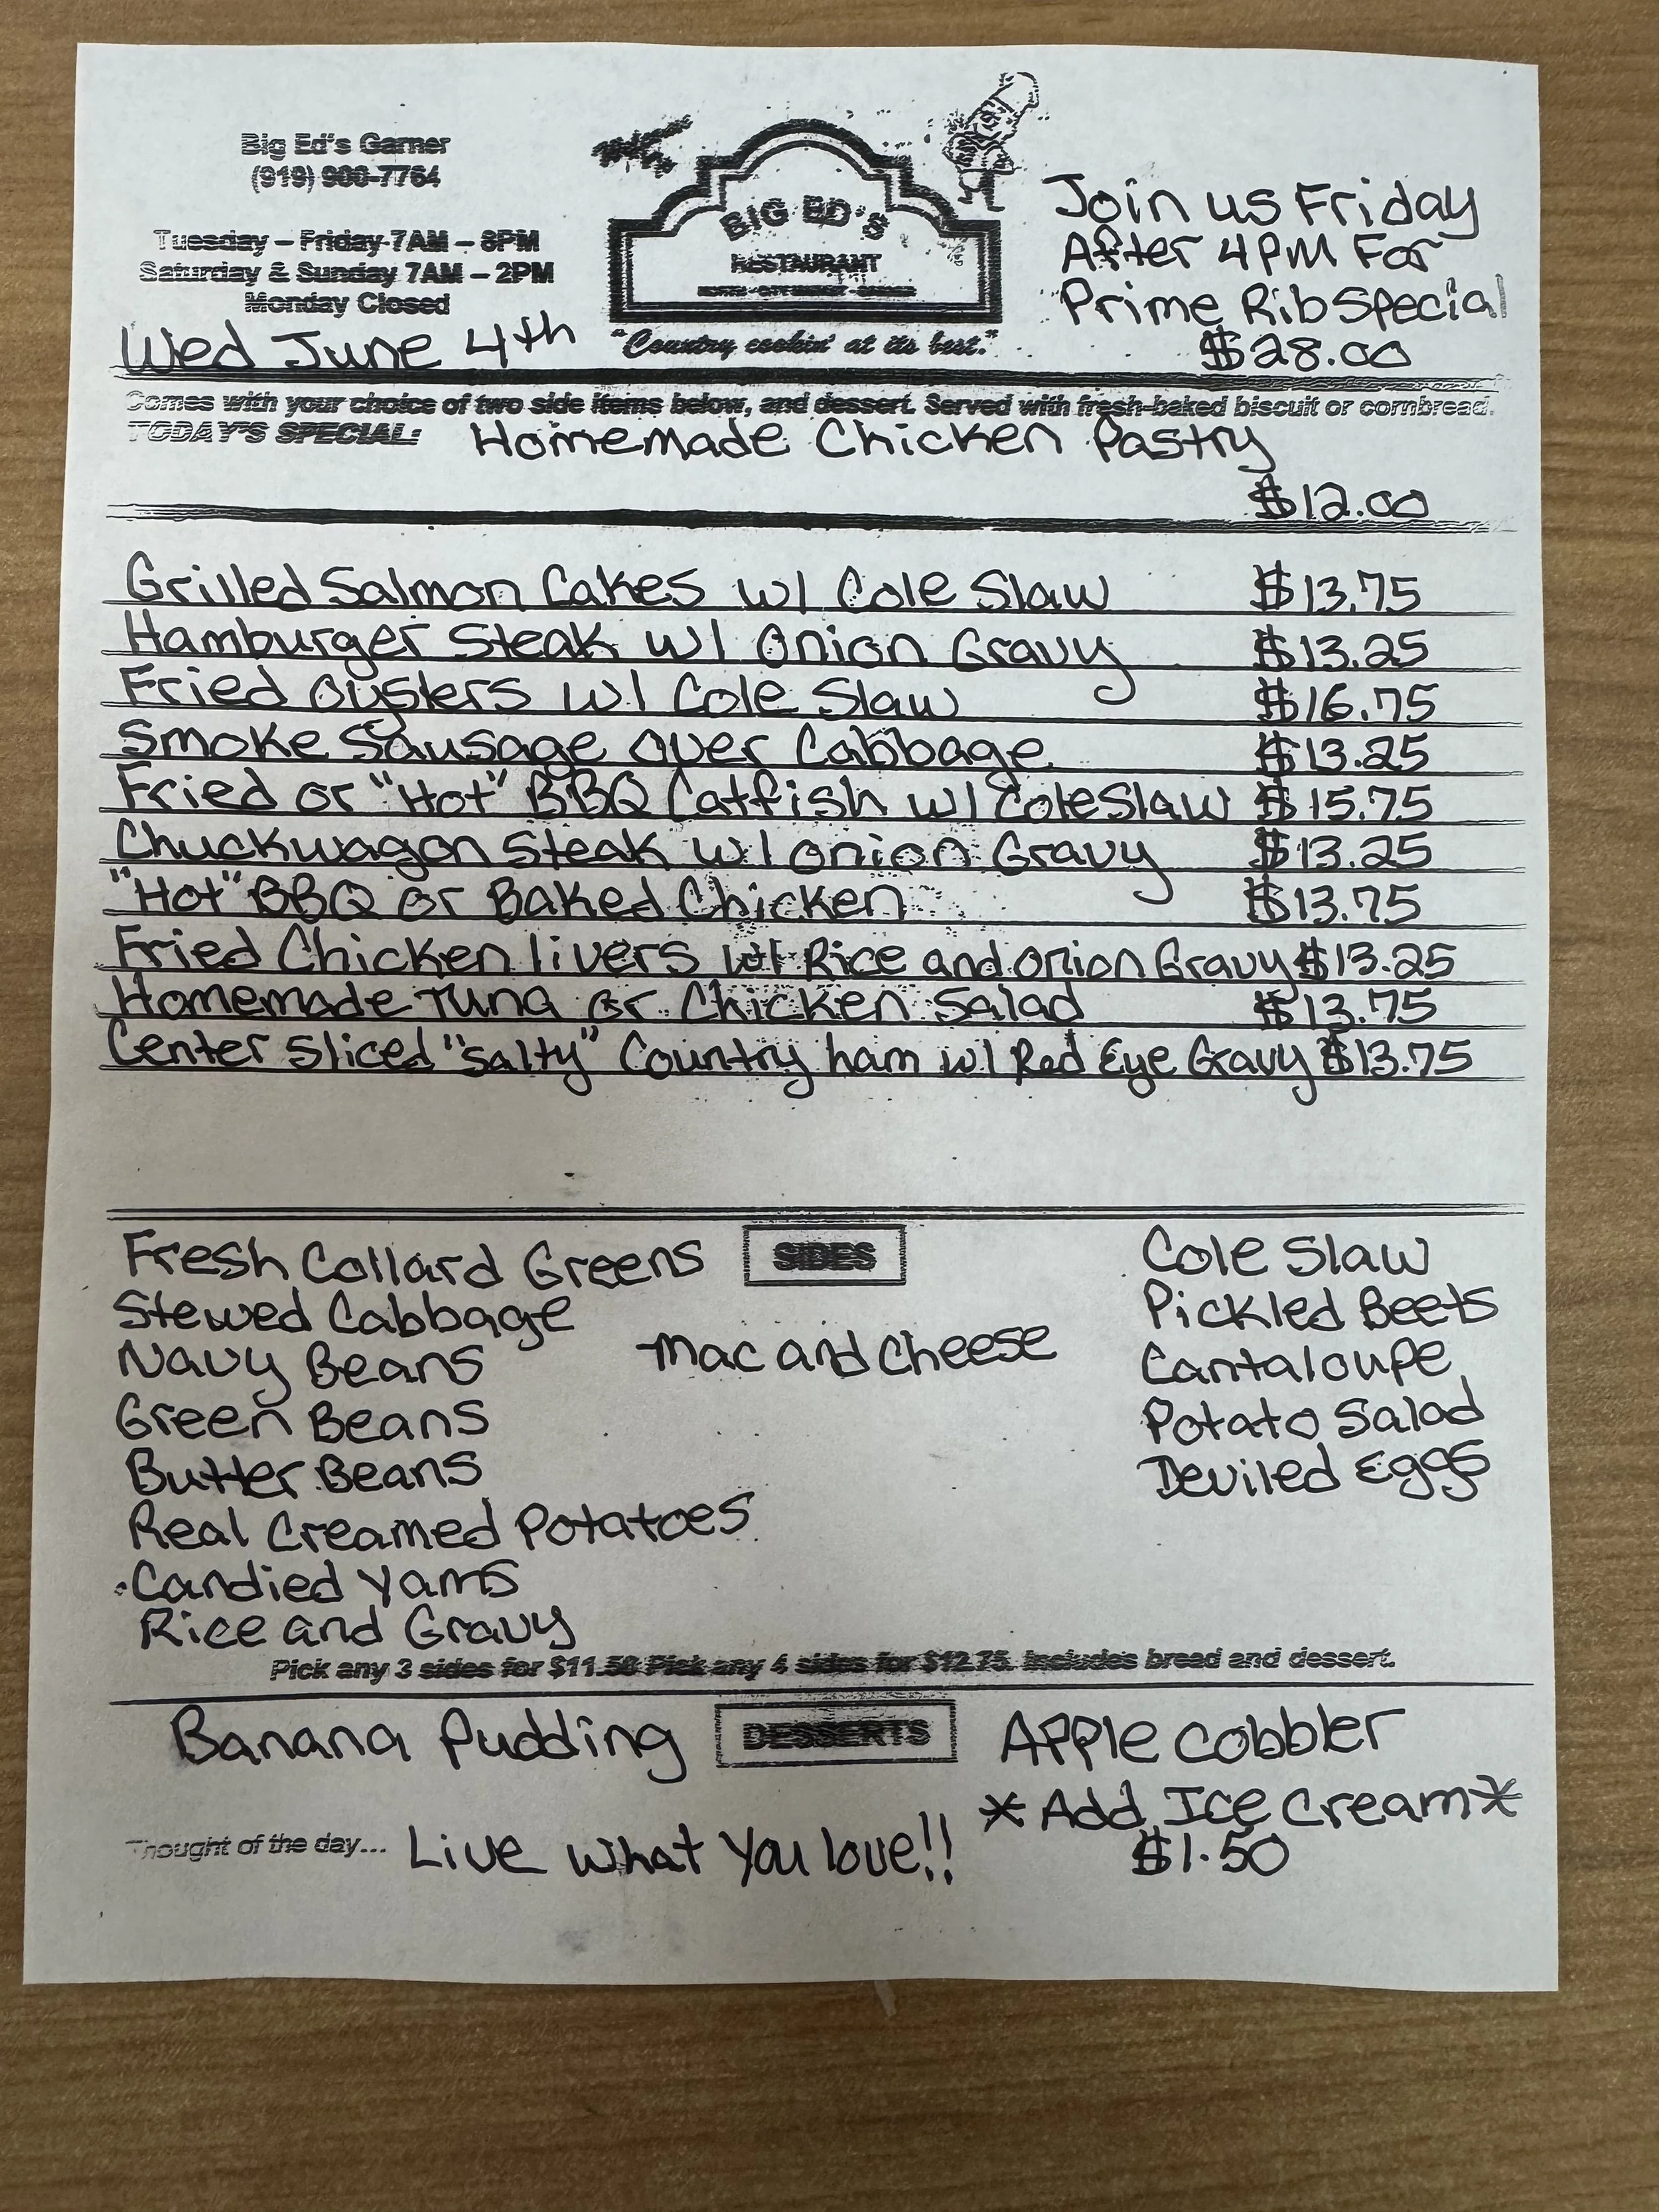 Big Ed's Garner
(919) 900-7764
Tuesday – Friday 7AM – 8PM
Saturday & Sunday 7AM – 2PM
Monday Closed
Wed June 4th
BIG ED'S
RESTAURANT
"Country cookin' at its best."
Join us Friday
After 4PM For
Prime Rib Special
$28.00
Comes with your choice of two side items below, and dessert. Served with fresh-baked biscuit or cornbread.
TODAY'S SPECIAL: Homemade Chicken Pastry
$12.00
Grilled Salmon Cakes w/ Cole Slaw $13.75
Hamburger Steak w/ Onion Gravy $13.25
Fried Oysters w/ Cole Slaw $16.75
Smoke Sausage over Cabbage $13.25
Fried or "Hot" BBQ Catfish w/ Cole Slaw $15.75
Chuckwagon Steak w/ Onion Gravy $13.25
"Hot" BBQ or Baked Chicken $13.75
Fried Chicken livers w/ Rice and Onion Gravy $13.25
Homemade Tuna or Chicken Salad $13.75
Center Sliced "Salty" Country ham w/ Red Eye Gravy $13.75
SIDES
Fresh Collard Greens
Stewed Cabbage
Navy Beans
Green Beans
Butter Beans
Real Creamed Potatoes
Candied Yams
Rice and Gravy
Mac and Cheese
Cole Slaw
Pickled Beets
Cantaloupe
Potato Salad
Deviled Eggs
Pick any 3 sides for $11.50 Pick any 4 sides for $12.75. Includes bread and dessert.
DESSERTS
Banana Pudding
Apple Cobbler
*Add Ice Cream*
$1.50
Thought of the day... Live What You love!!